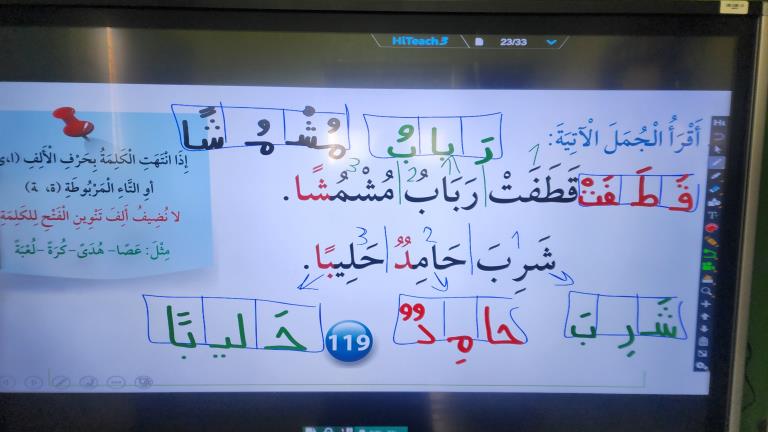 HiTeach5 23/33
أَقْرَأُ الْجُمَلَ الْآتِيَةَ:
رَ با بُ
مُشْ مُ شًا
قَطَفَتْ رَبَابُ مُشْمُشًا.
1 2 3
قَ طَ فَتْ
شَرِبَ حَامِدٌ حَلِيبًا.
1 2 3
شَ رِ بَ
حا مِ دٌ
حَ ليـ بًا
119
إِذَا انْتَهَتِ الْكَلِمَةُ بِحَرْفِ الْأَلِفِ (ا،ى
أَوِ التَّاءِ الْمَرْبُوطَةِ (ة، ـة)
لَا نُضِيفُ أَلِفَ تَنْوِينِ الْفَتْحِ لِلْكَلِمَةِ
مِثْلَ: عَصًا- هُدًى- كُرَةً -لُعْبَةً